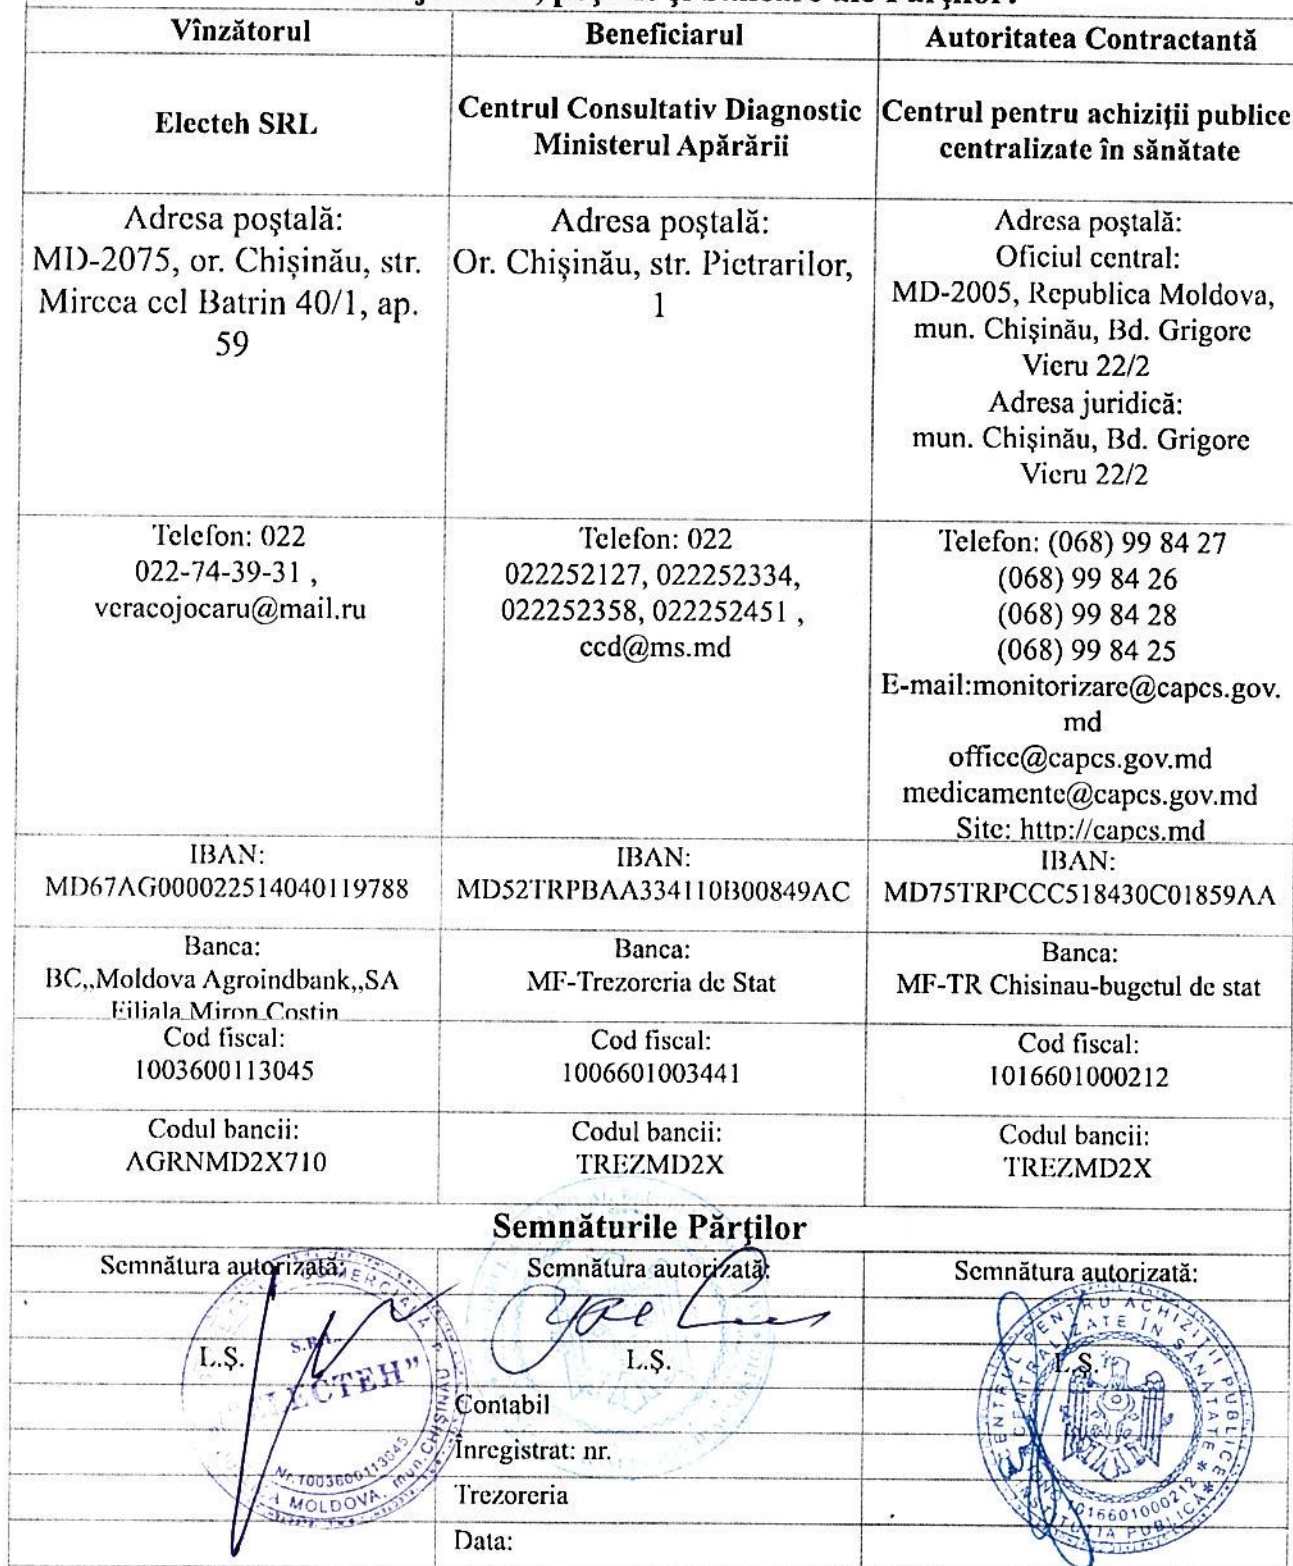 Vînzătorul
Beneficiarul
Autoritatea Contractantă
Electeh SRL
Centrul Consultativ Diagnostic
Ministerul Apărării
Centrul pentru achiziţii publice
centralizate în sănătate
Adresa poştală:
MD-2075, or. Chișinău, str.
Mircea cel Batrin 40/1, ap.
59
Adresa poştală:
Or. Chișinău, str. Pietrarilor,
1
Adresa poştală:
Oficiul central:
MD-2005, Republica Moldova,
mun. Chişinău, Bd. Grigore
Vieru 22/2
Adresa juridică:
mun. Chişinău, Bd. Grigore
Vieru 22/2
Telefon: 022
022-74-39-31 ,
veracojocaru@mail.ru
Telefon: 022
022252127, 022252334,
022252358, 022252451 ,
ccd@ms.md
Telefon: (068) 99 84 27
(068) 99 84 26
(068) 99 84 28
(068) 99 84 25
E-mail:monitorizare@capcs.gov.
md
office@capcs.gov.md
medicamente@capcs.gov.md
Site: http://capcs.md
IBAN:
MD67AG000022514040119788
IBAN:
MD52TRPBAA334110B00849AC
IBAN:
MD75TRPCCC518430C01859AA
Banca:
BC,,Moldova Agroindbank,,SA
Filiala Miron Costin
Banca:
MF-Trezoreria de Stat
Banca:
MF-TR Chisinau-bugetul de stat
Cod fiscal:
1003600113045
Cod fiscal:
1006601003441
Cod fiscal:
1016601000212
Codul bancii:
AGRNMD2X710
Codul bancii:
TREZMD2X
Codul bancii:
TREZMD2X
Semnăturile Părţilor
Semnătura autorizată:
Semnătura autorizată:
Semnătura autorizată:
L.Ş.
L.Ş.
L.Ş.
Contabil
Înregistrat: nr.
Trezoreria
Data:
COMERCIAL
S.R.L.
"ELECTEH"
Nr.1003600113045
MOLDOVA, mun.CHIŞINĂU
CENTRUL PENTRU ACHIZIŢII PUBLICE
CENTRALIZATE ÎN SĂNĂTATE
1016601000212
INSTITUŢIA PUBLICĂ